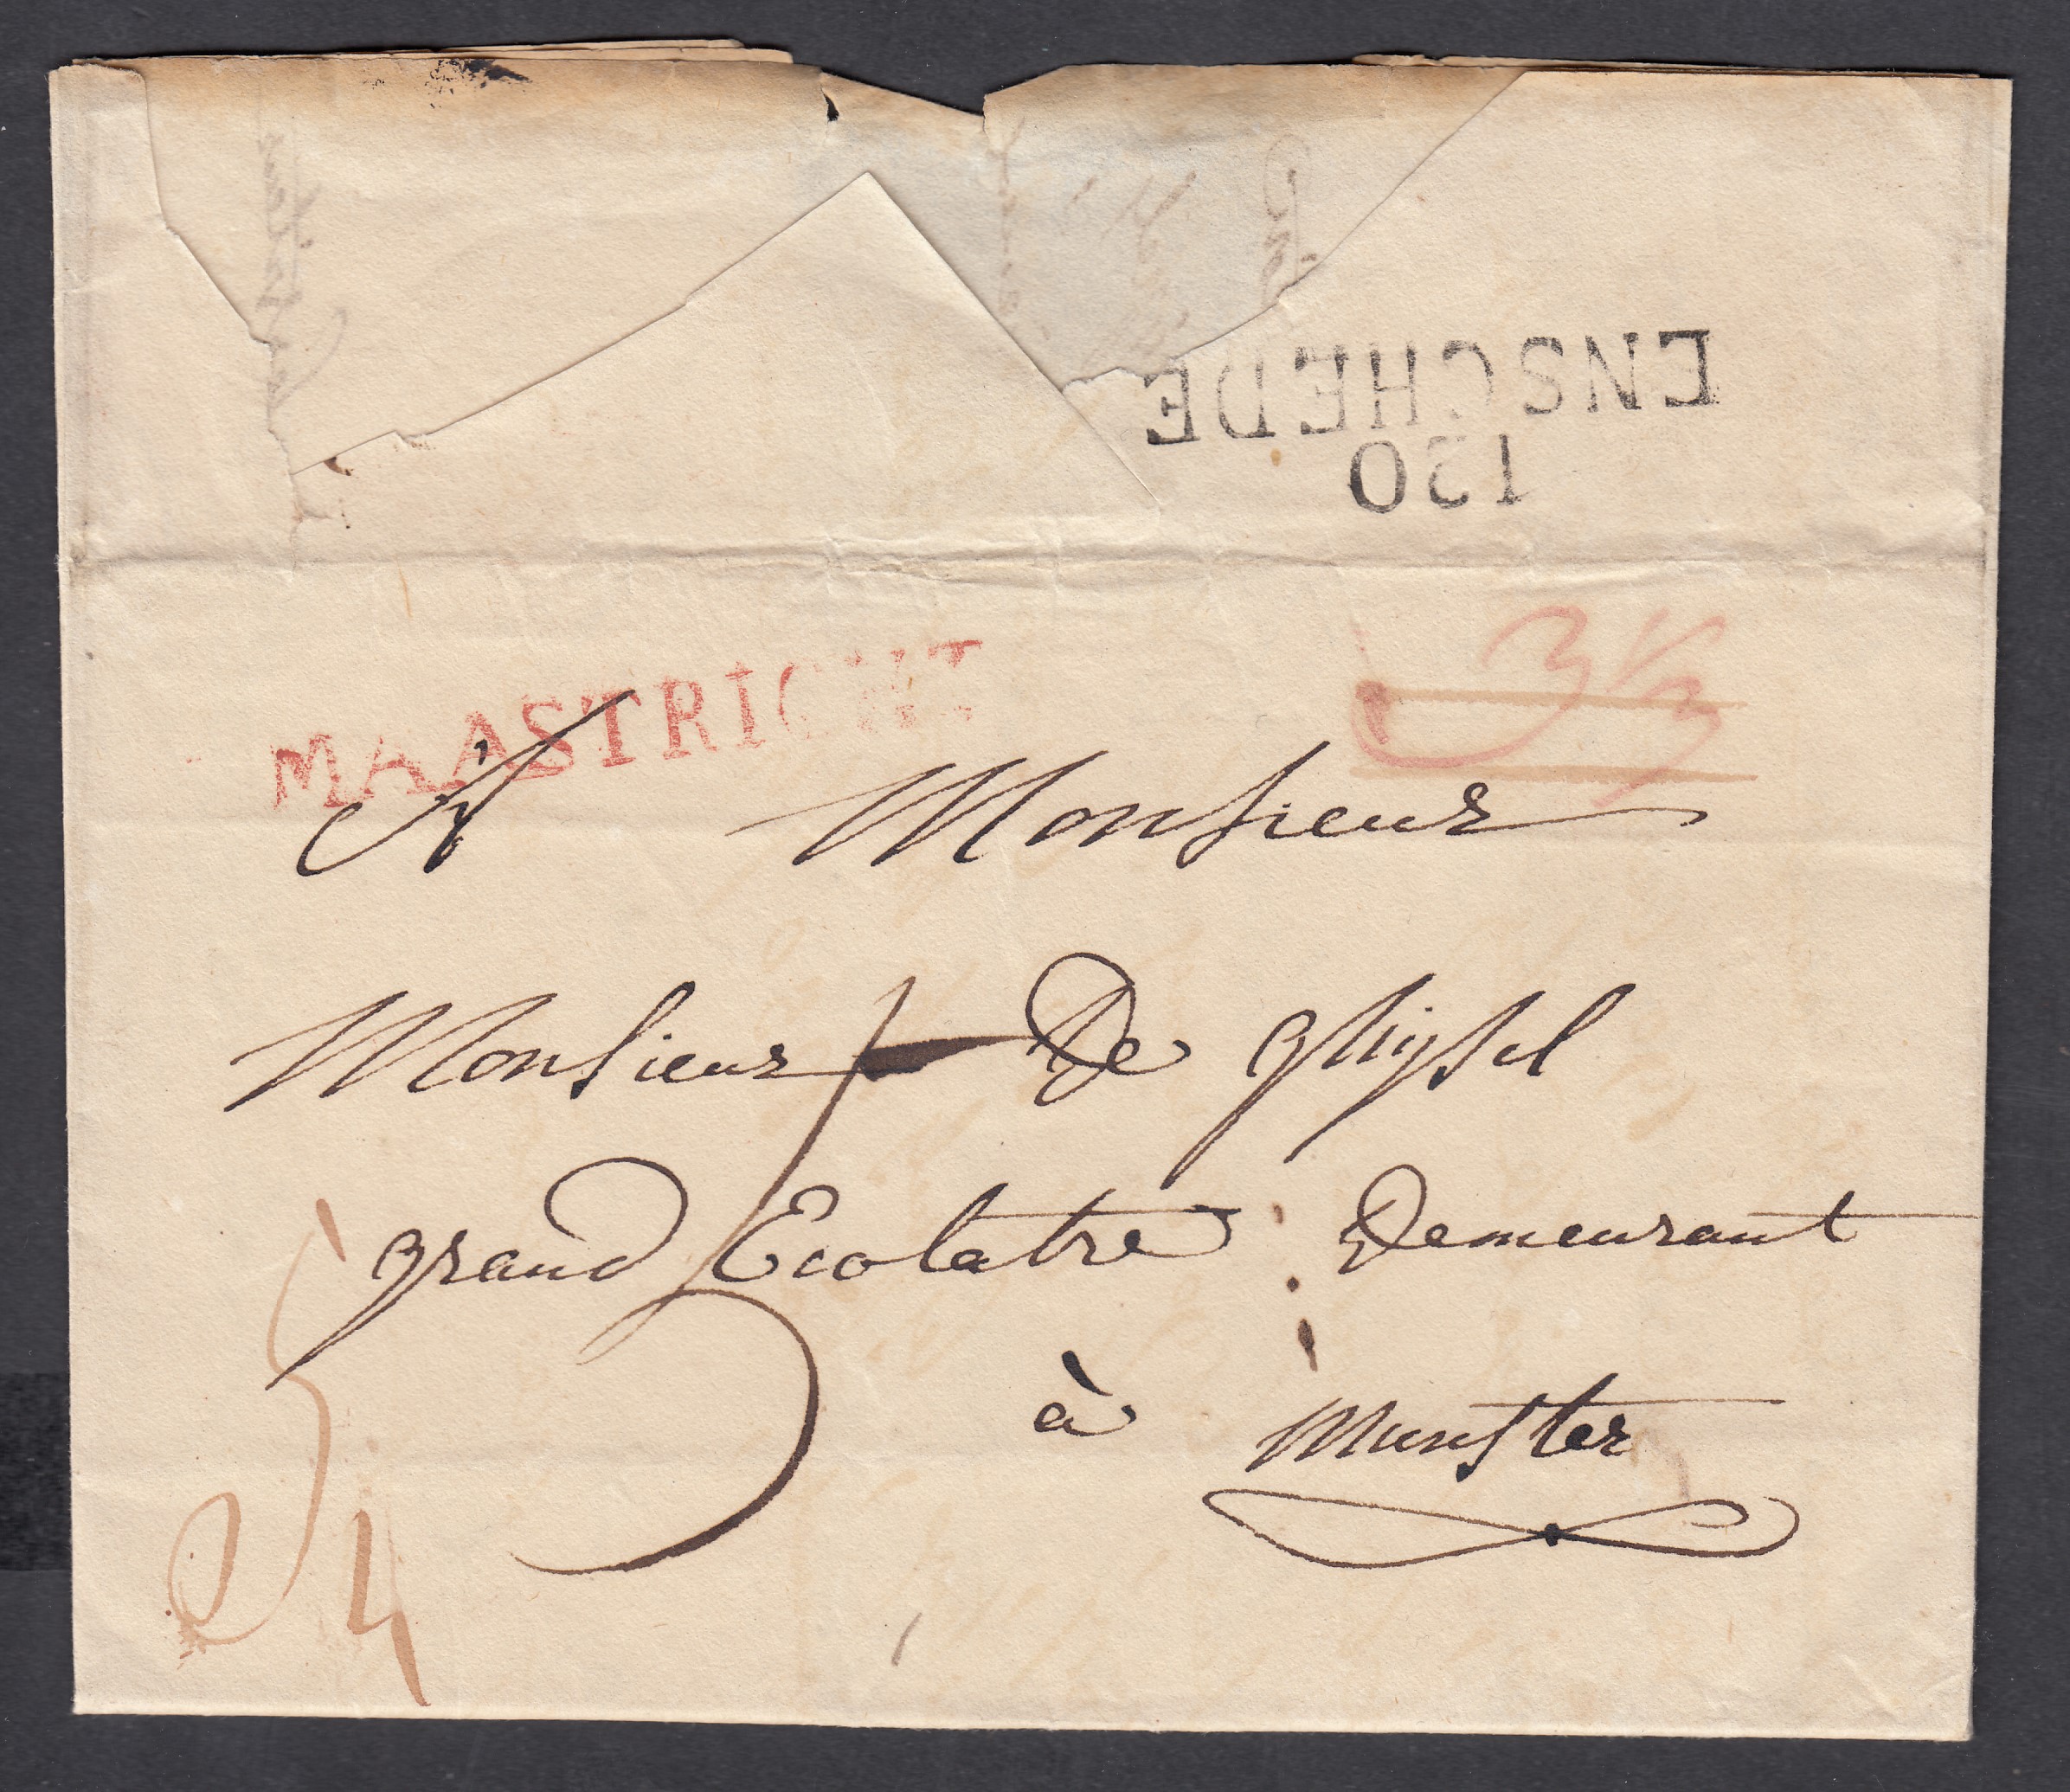 ENSCHEDE
120
MAASTRICHT
3 1/2
A Monsieur
Monsieur De ghysel
grand Ecolatre Demeurant
à Munster